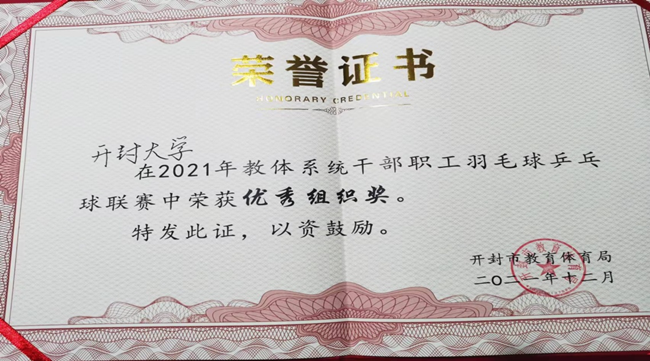 荣誉证书
HONORARY CREDENTIAL
开封大学
在2021年教体系统干部职工羽毛球乒乓
球联赛中荣获优秀组织奖。
特发此证，以资鼓励。
开封市教育体育局
二〇二一年十二月